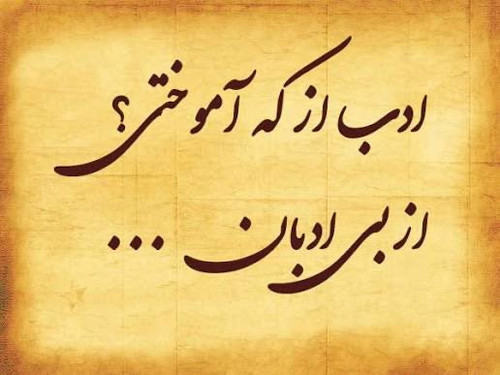 ادب از که آموختی؟
از بی ادبان ...